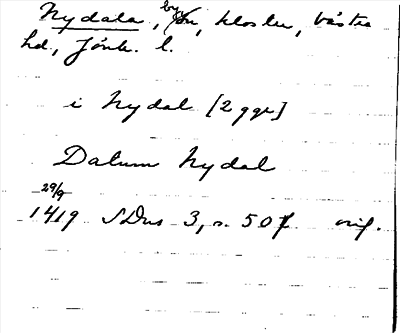 Nydala, by, kloster, Västra
hd, Jönk. l.
i Nydal [2 ggr]
Datum Nydal
29/9
1419 SDns 3, s. 507 orig.